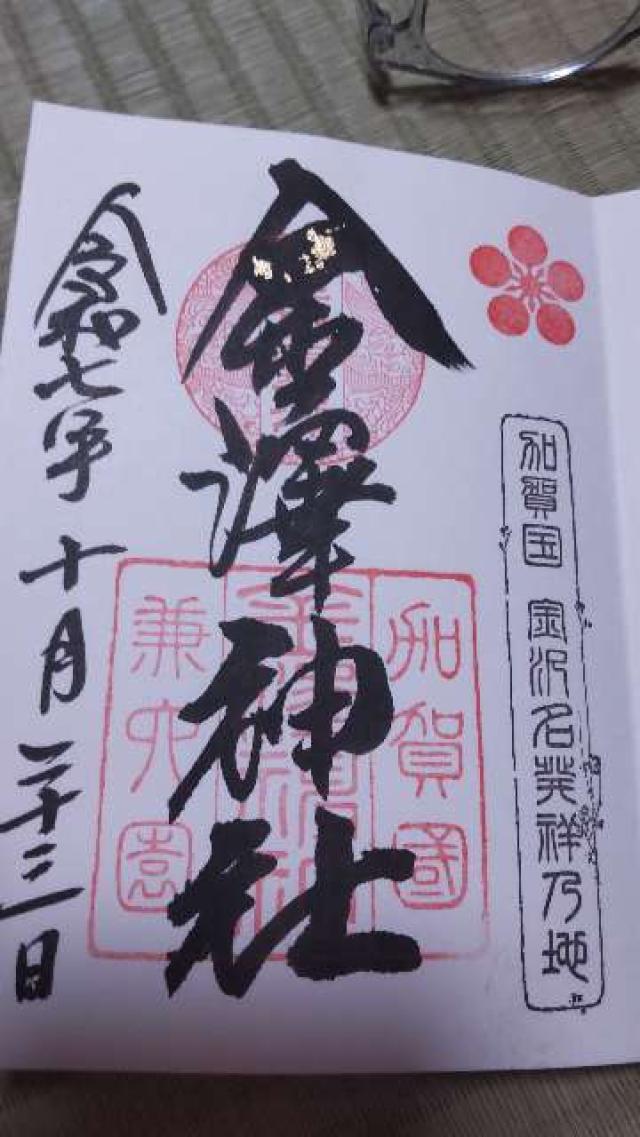 加賀国 金沢名発祥乃地
金澤神社
加賀國
金澤神社
兼六園
令和七年 十月 二十三日